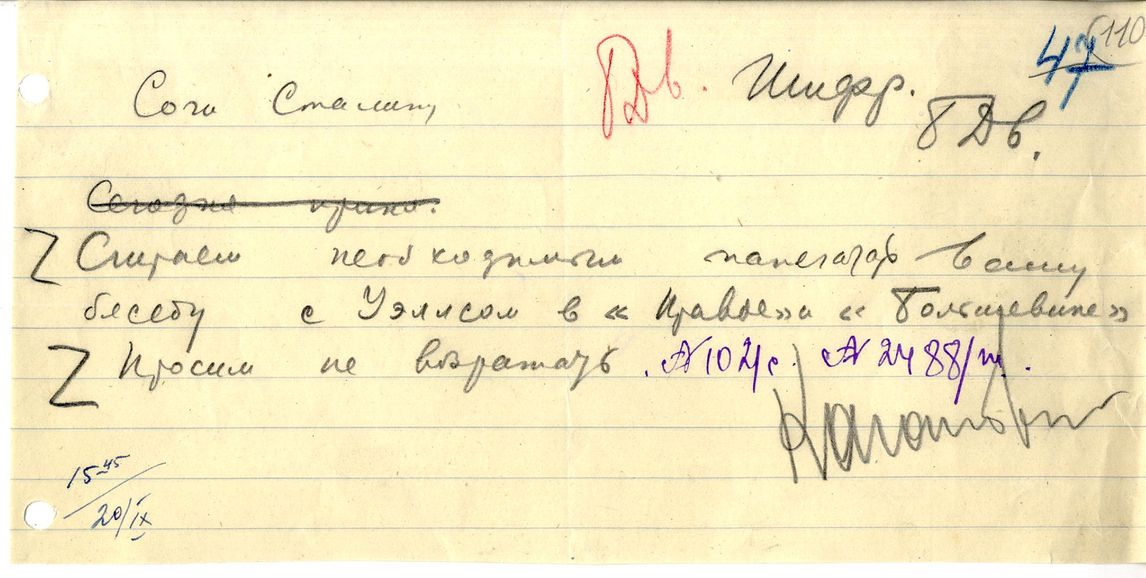 110
47
Сочи Сталину
Шифр.
Сегодня
Считаем необходимым напечатать Вашу
беседу с Уэллсом в «Правде» и «Большевике»
Просим не возражать. № 102/с. № 2488/ш.
Каганович
15-45
20/IX